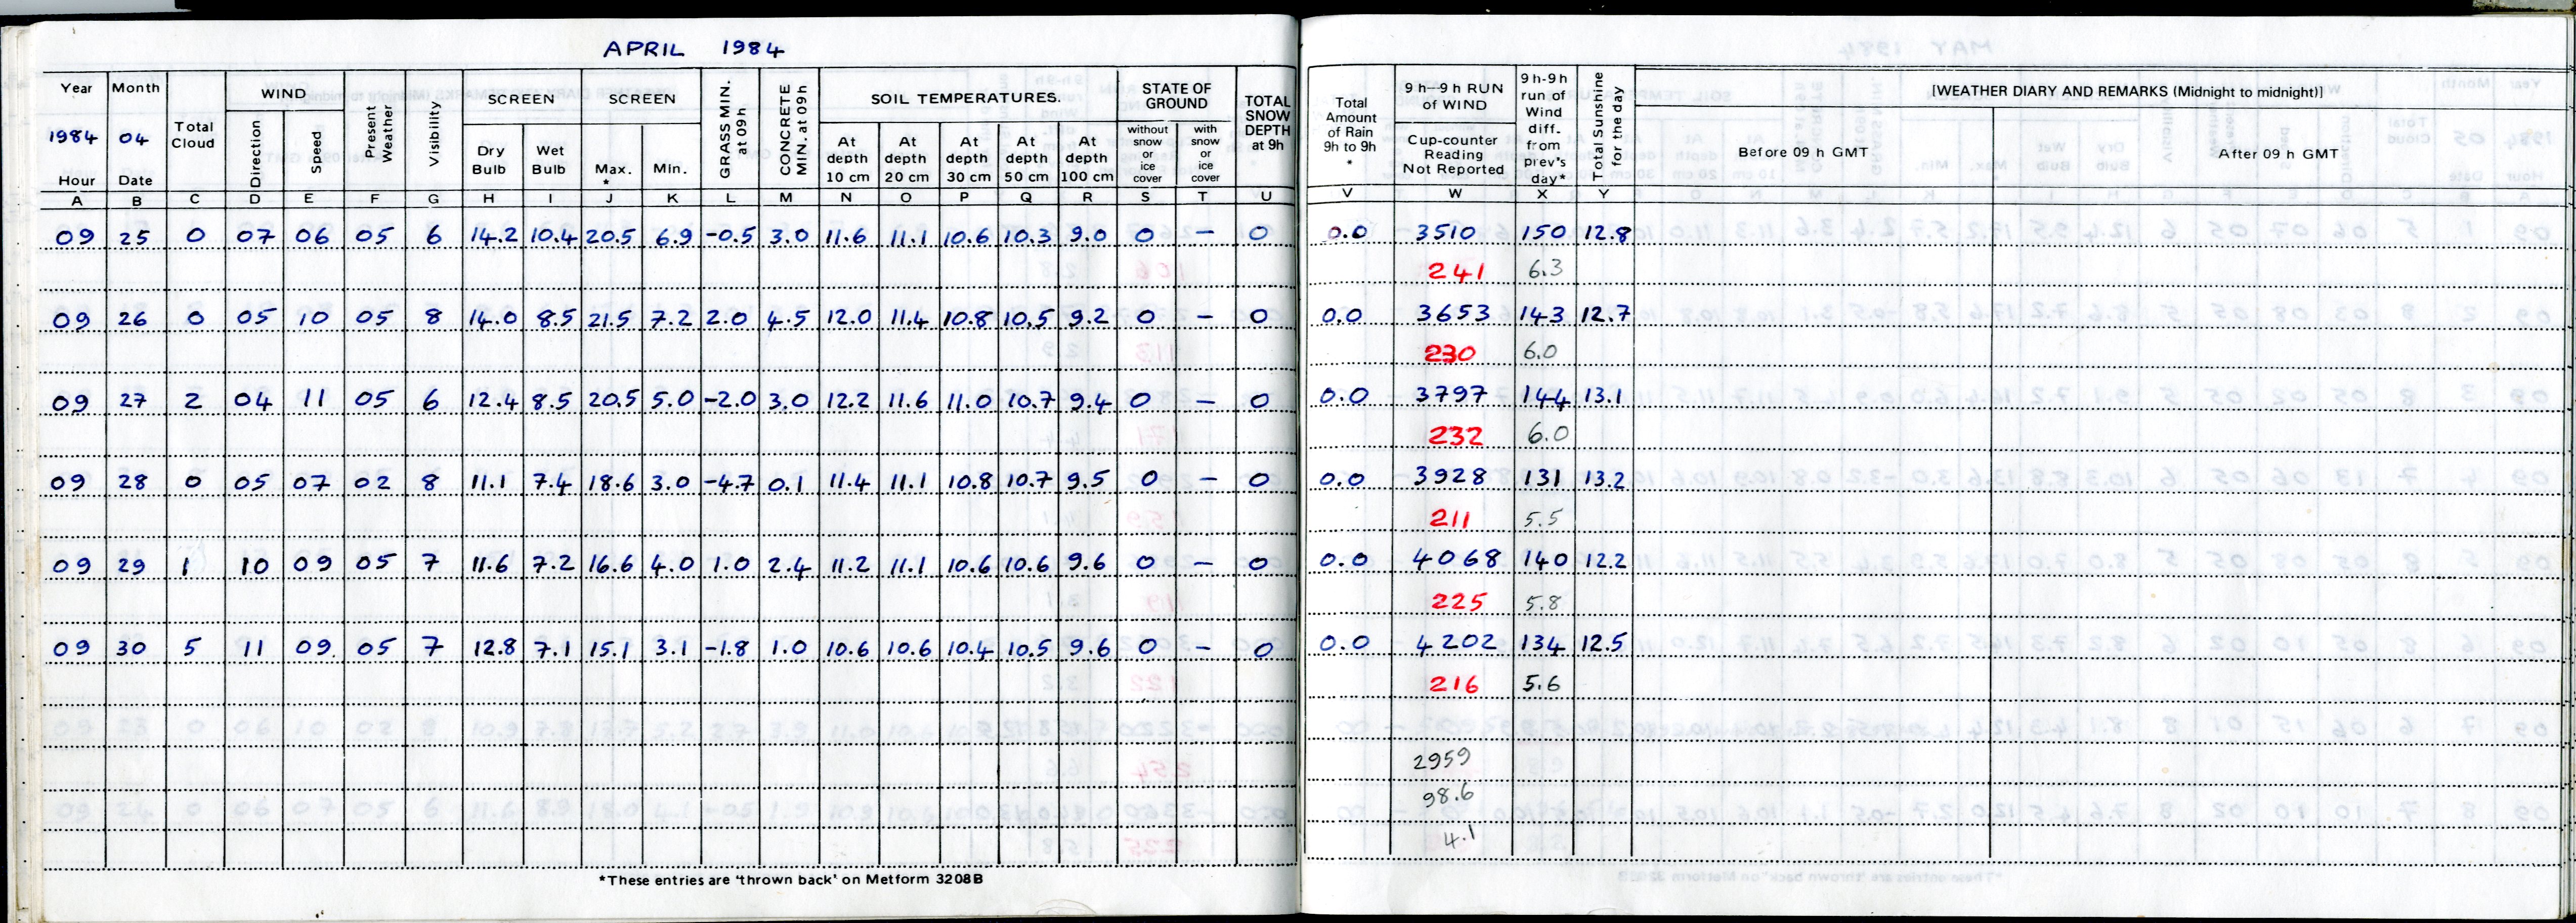 APRIL 1984
Year Month WIND SCREEN SCREEN SOIL TEMPERATURES. STATE OF GROUND
1984 04 Total Cloud Direction Speed Present Weather Visibility Dry Bulb Wet Bulb Max. * Min. GRASS MIN. at 09h CONCRETE MIN. at 09h At depth 10 cm At depth 20 cm At depth 30 cm At depth 50 cm At depth 100 cm without snow or ice cover with snow or ice cover TOTAL SNOW DEPTH at 9h
Hour Date
Total Amount of Rain 9h to 9h * 9h–9h RUN of WIND Cup-counter Reading Not Reported 9h-9h run of Wind diff. from prev's day* Total Sunshine for the day [WEATHER DIARY AND REMARKS (Midnight to midnight)]
Before 09 h GMT After 09 h GMT
A B C D E F G H I J K L M N O P Q R S T U V W X Y
09 25 0 07 06 05 6 14.2 10.4 20.5 6.9 -0.5 3.0 11.6 11.1 10.6 10.3 9.0 0 – 0 0.0 3510 150 12.8
241 6.3
09 26 0 05 10 05 8 14.0 8.5 21.5 7.2 2.0 4.5 12.0 11.4 10.8 10.5 9.2 0 – 0 0.0 3653 143 12.7
230 6.0
09 27 2 04 11 05 6 12.4 8.5 20.5 5.0 -2.0 3.0 12.2 11.6 11.0 10.7 9.4 0 – 0 0.0 3797 144 13.1
232 6.0
09 28 0 05 07 02 8 11.1 7.4 18.6 3.0 -4.7 0.1 11.4 11.1 10.8 10.7 9.5 0 – 0 0.0 3928 131 13.2
211 5.5
09 29 1 10 09 05 7 11.6 7.2 16.6 4.0 1.0 2.4 11.2 11.1 10.6 10.6 9.6 0 – 0 0.0 4068 140 12.2
225 5.8
09 30 5 11 09 05 7 12.8 7.1 15.1 3.1 -1.8 1.0 10.6 10.6 10.4 10.5 9.6 0 – 0 0.0 4202 134 12.5
216 5.6
2959
98.6
4.1
*These entries are 'thrown back' on Metform 3208B